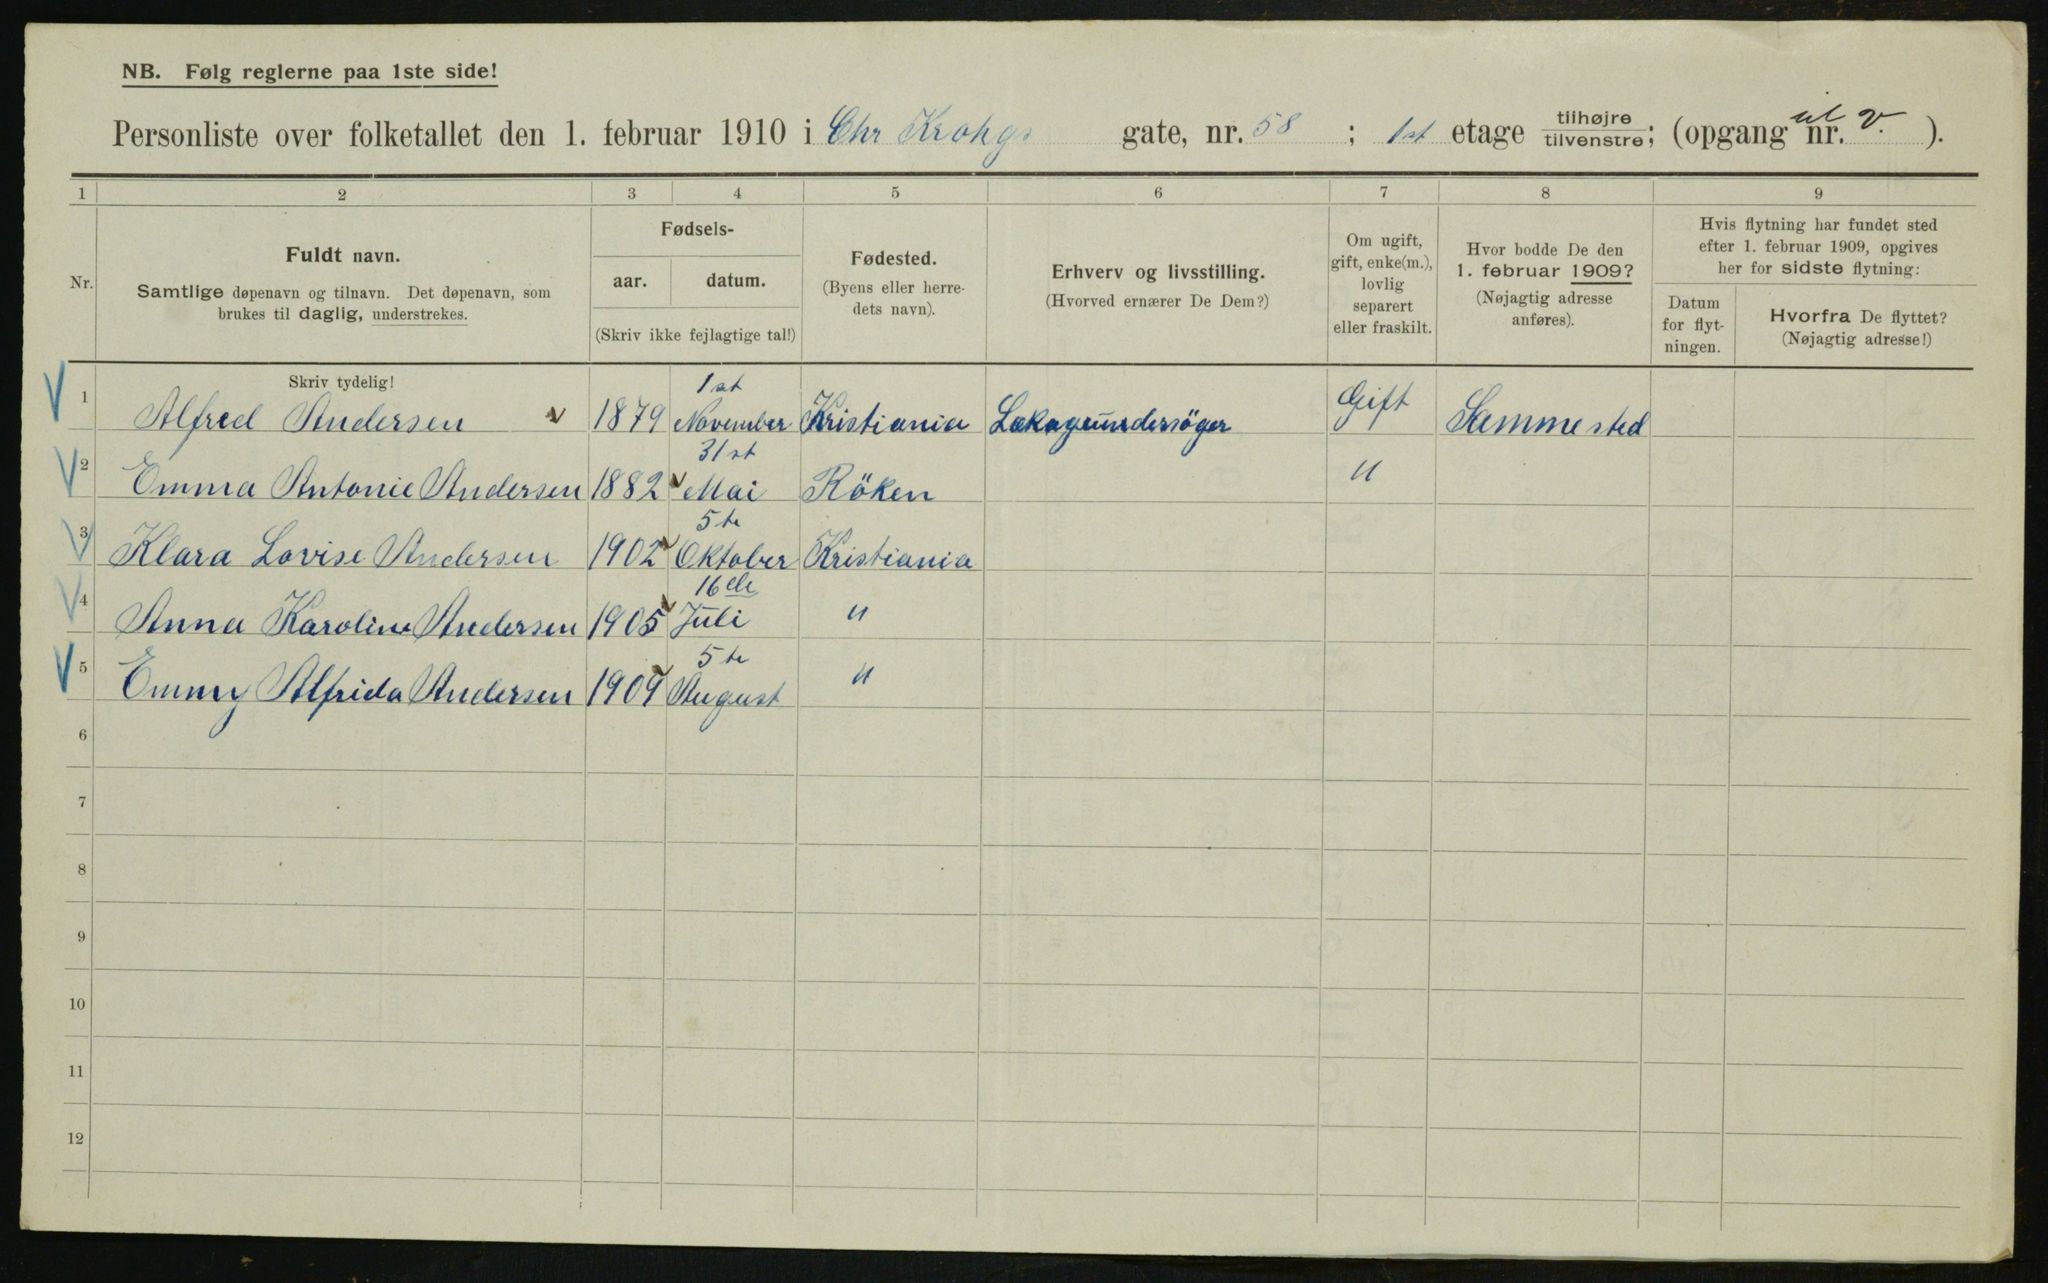 NB. Følg reglerne paa 1ste side!
Personliste over folketallet den 1. februar 1910 i Chr Krohgs gate, nr. 58 ; 1st etage tilhøjre / tilvenstre ; (opgang nr. til v. ).
1 2 3 4 5 6 7 8 9
Nr.
Fuldt navn.
Samtlige døpenavn og tilnavn. Det døpenavn, som
brukes til daglig, understrekes.
Fødsels-
aar. datum.
(Skriv ikke fejlagtige tal!)
Fødested.
(Byens eller herre-
dets navn).
Erhverv og livsstilling.
(Hvorved ernærer De Dem?)
Om ugift,
gift, enke(m.),
lovlig
separert
eller fraskilt.
Hvor bodde De den
1. februar 1909?
(Nøjagtig adresse
anføres).
Hvis flytning har fundet sted
efter 1. februar 1909, opgives
her for sidste flytning:
Datum
for flyt-
ningen.
Hvorfra De flyttet?
(Nøjagtig adresse!)
Skriv tydelig!
1 Alfred Andersen 1879 1st November Kristiania Lækageundersöger Gift Sammested
2 Emma Antonie Andersen 1882 31st Mai Röken "
3 Klara Lovise Andersen 1902 5te Oktober Kristiania
4 Anna Karoline Andersen 1905 16de Juli "
5 Emmy Alfrida Andersen 1909 5te August "
6
7
8
9
10
11
12